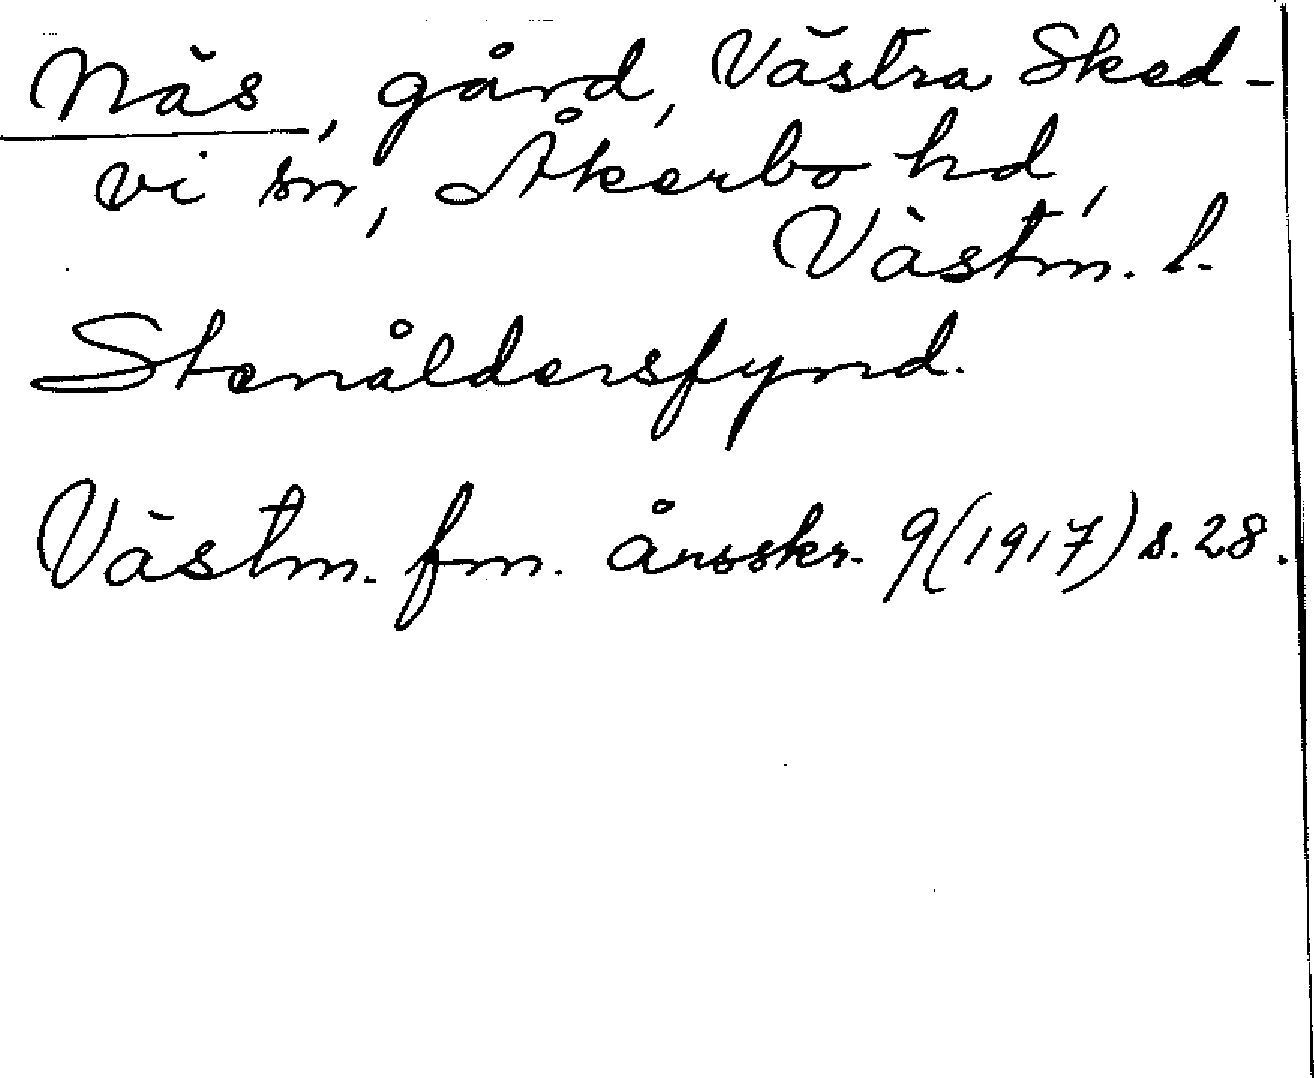 Näs, gård, Västra Sked-
vi sn, Åkerbo hd,
Västm. l.
Stenåldersfynd.
Västm. fm. årsskr. 9(1917) s. 28.